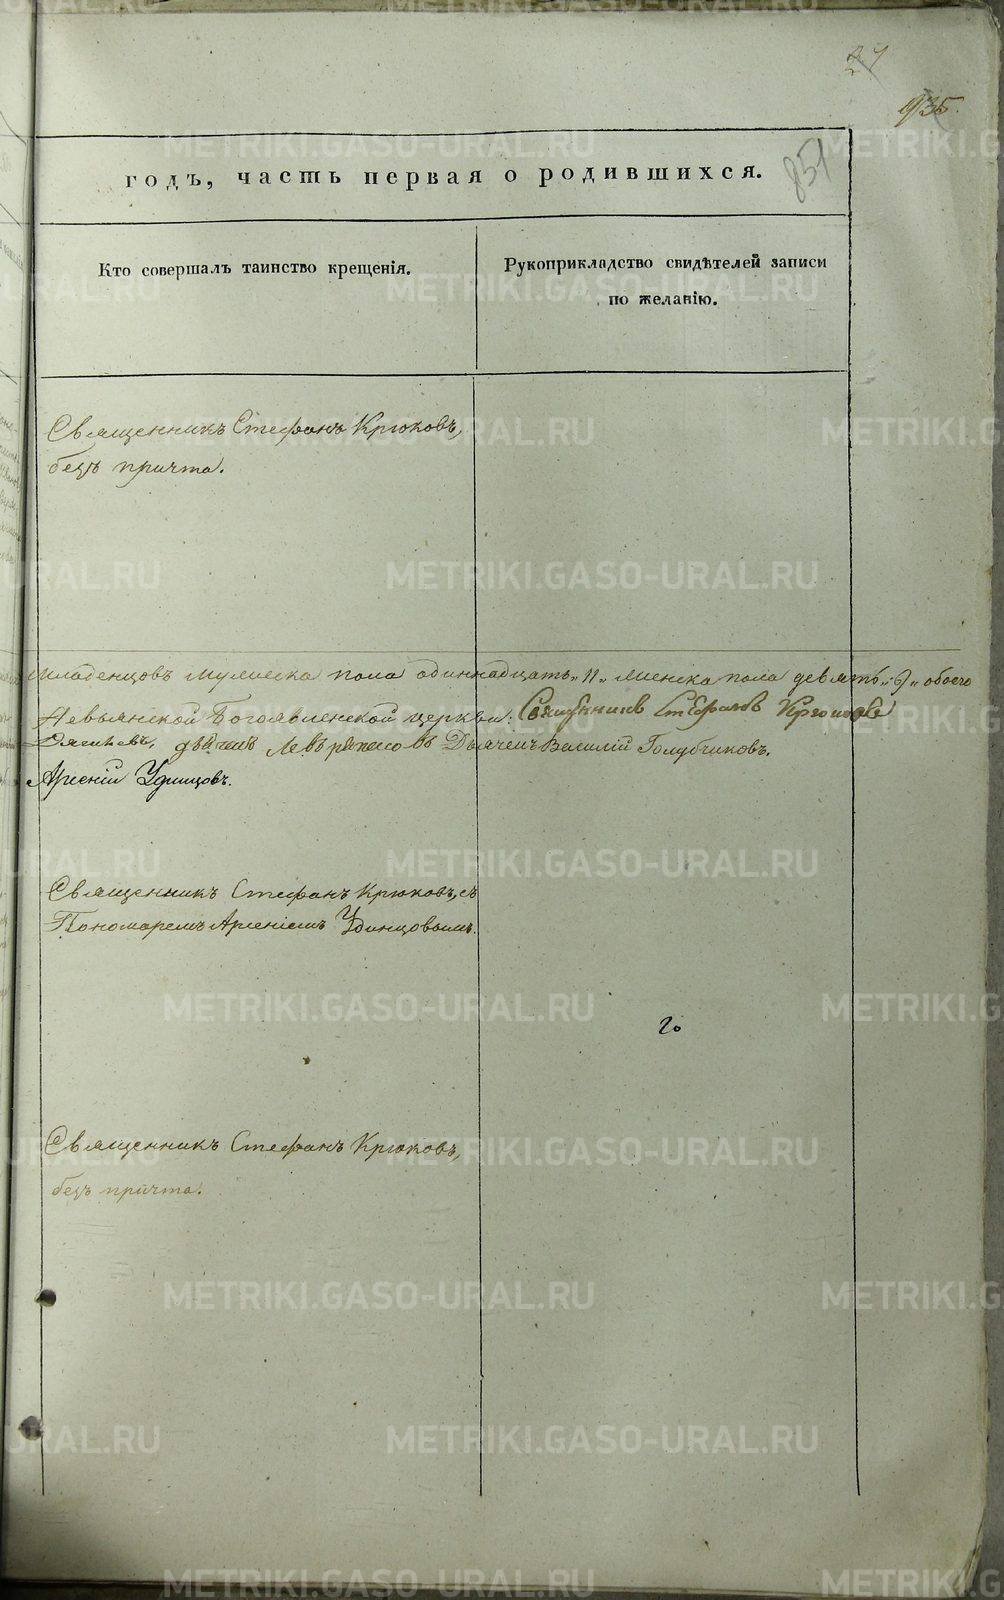 27
935.
851
годъ, часть первая о родившихся.
Кто совершалъ таинство крещенія.
Рукоприкладство свидѣтелей записи
по желанію.
Священникъ Стефанъ Крюковъ,
безъ причта.
младенцовъ мужеска пола одиннадцать „11„ женска пола девять „9„ обоего
Невьянской Богоявленской церкви: Священникъ Стефанъ Крюковъ
дьячекъ Дьячекъ Василій Голубчиковъ.
Арсеній Удинцовъ.
Священникъ Стефанъ Крюковъ, съ
Пономаремъ Арсеніемъ Удинцовымъ.
20
Священникъ Стефанъ Крюковъ,
безъ причта.
METRIKI.GASO-URAL.RU